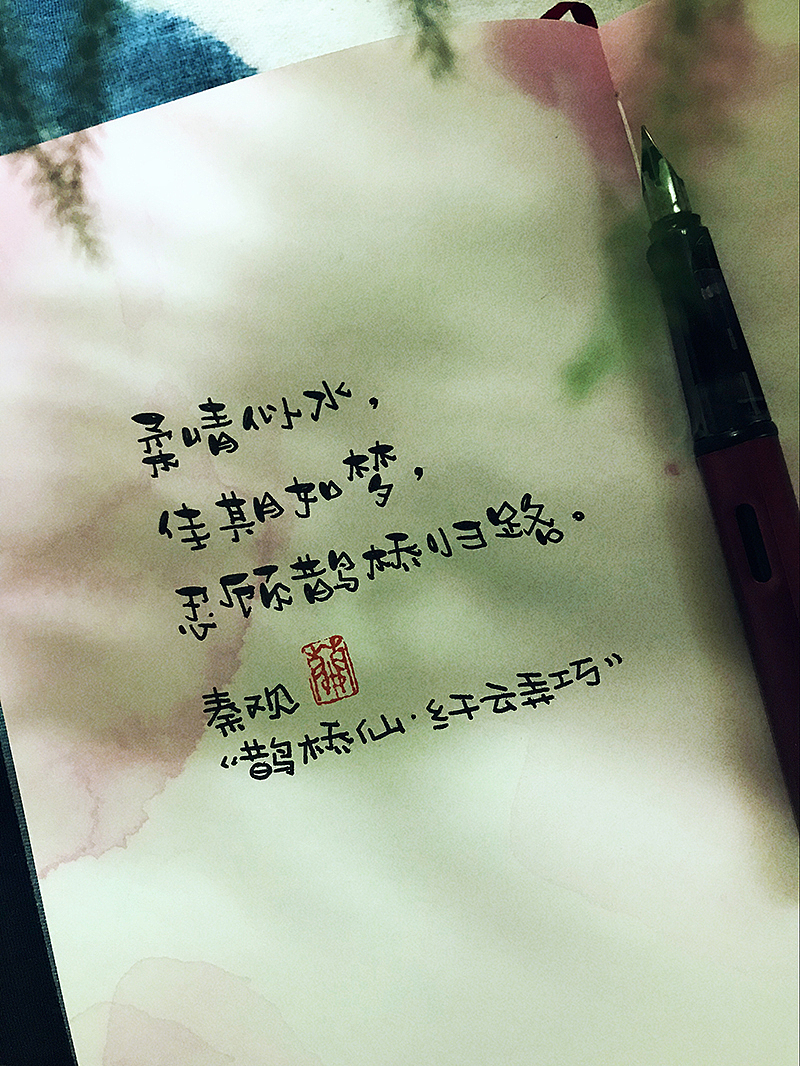 柔情似水，
佳期如梦，
忍顾鹊桥归路。
秦观
“鹊桥仙·纤云弄巧”